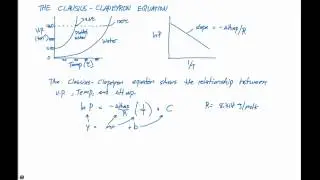 THE CLAUSIUS-CLAPEYRON EQUATION
V.P.
water
Temp (°C)
ln P
slope = -ΔHvap/R
1/T
The Clausius-Clapeyron equation shows the relationship between
V.P., Temp, and ΔHvap.
ln P = -ΔHvap/R (1/T) + C
R = 8.314 J/molK
y = mx + b